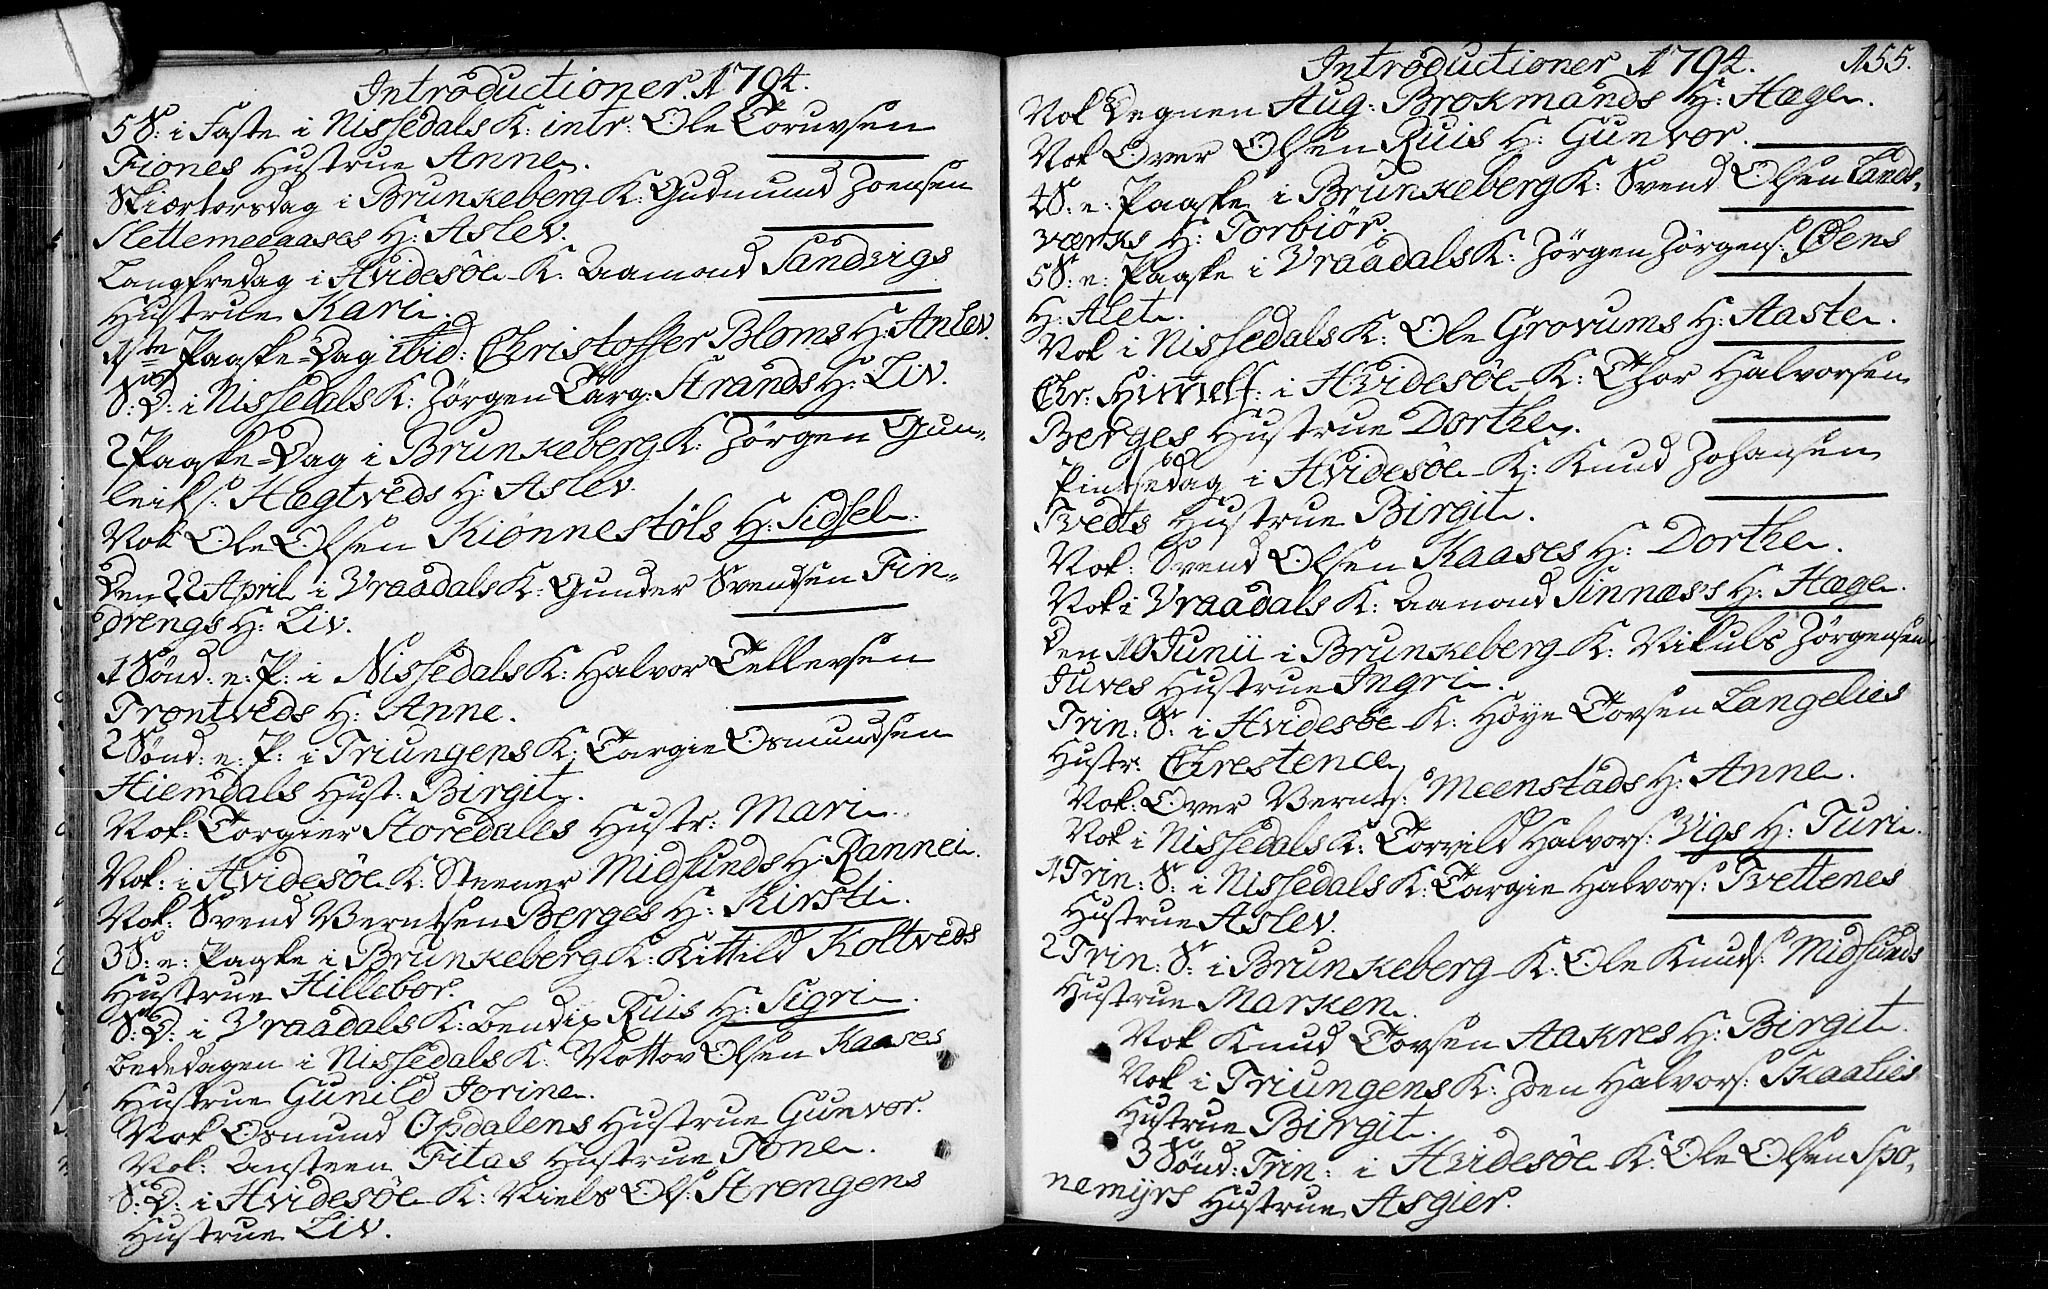 Introductioner 1794.
5 S: i Faste i Nissedals K: intr: Ole Toruvsen
Fiones Hustrue Anne.
Skiærtorsdag i Brunkeberg K: Gudmund Joensen
Slettemeeaases H: Aslev.
Langfredag i Hvidesöe K: Aamond Sandvigs
Hustrue Kari.
1ste Paaske-Dag ibid: Christoffer Bloms H: Anlev.
S: D: i Nissedals K: Jörgen Targ: Strands H: Liv.
2 Paaske-Dag i Brunkeberg K: Jörgen Gun-
leiks: Hægtveds H: Aslev.
Nok Ole Olsen Kiönnestöls H: Sidsel.
Den 22 April i Vraadals K: Gunder Svendsen Fin-
drengs H: Liv.
1 Sönd: e: P: i Nissedals K: Halvor Tellevsen
Trontveds H: Anne.
2 Sönd: e: P: i Triungens K: Targie Osmundsen
Hiemdals Hust: Birgit.
Nok: Torgier Storedales Hustr: Mari.
Nok: i Hvidesöe K: Steener Midsunds H: Rannei.
Nok: Svend Berntsen Berges H: Kirsti.
3 S: e: Paaske i Brunkeberg K: Kittild Koltveds
Hustrue Hillebor.
S: D: i Vraadals K: Bendix Ruis H: Sigri.
Bededagen i Nissedals K: Nottov Olsen Kaases
Hustrue Gunild Jorine.
Nok Osmund Opdalens Hustrue Gunvor.
Nok: Ansteen Fitas Hustrue Tone.
S: D: i Hvidesöe K: Niels Ols: Strengens
Hustrue Liv.
Introductioner 1794. 155.
Nok Degnen Aug: Brokmands H: Hæge.
Nok Over Olsen Ruis H: Gunvor.
4 S: e: Paaske i Brunkeberg K: Svend Olsen Lands-
værks H: Torbiör.
5 S: e: Paaske i Vraadals K: Jörgen Jörgens: Öens
H: Alet.
Nok i Nissedals K: Ole Grovums H: Aaste.
Chr: Himelf: i Hvidesöe K: Thor Halvorsen
Berges Hustrue Dorthe.
Pintsedag i Hvidesöe K: Knud Johansen
Tvedts Hustrue Birgit.
Nok: Svend Olsen Kaases H: Dorthe.
Nok i Vraadals K: Aamond Sinnæss H: Hæge.
Den 10 Junii i Brunkeberg K: Nikuls Jörgensen
Juves Hustrue Ingri.
Trin: S: i Hvidesöe K: Höye Tovsen Langelies
Hustr: Chrestence.
Nok: Over Bernts: Meenstads H: Anne.
Nok i Nissedals K: Torvild Halvors: Vigs H: Turi.
1 Trin: S: i Nissedals K: Targie Halvors: Tvettenes
Hustrue Aslev.
2 Trin: S: i Brunkeberg K: Ole Knuds: Midsunds
Hustrue Marken.
Nok Knud Tovsen Aakres H: Birgit.
Nok i Triungens K: Joen Halvors: Skaalies
Hustrue Birgit.
3 Sönd: Trin: i Hvidesöe K: Ole Olsen Spo-
nemyrs Hustrue Asgier.